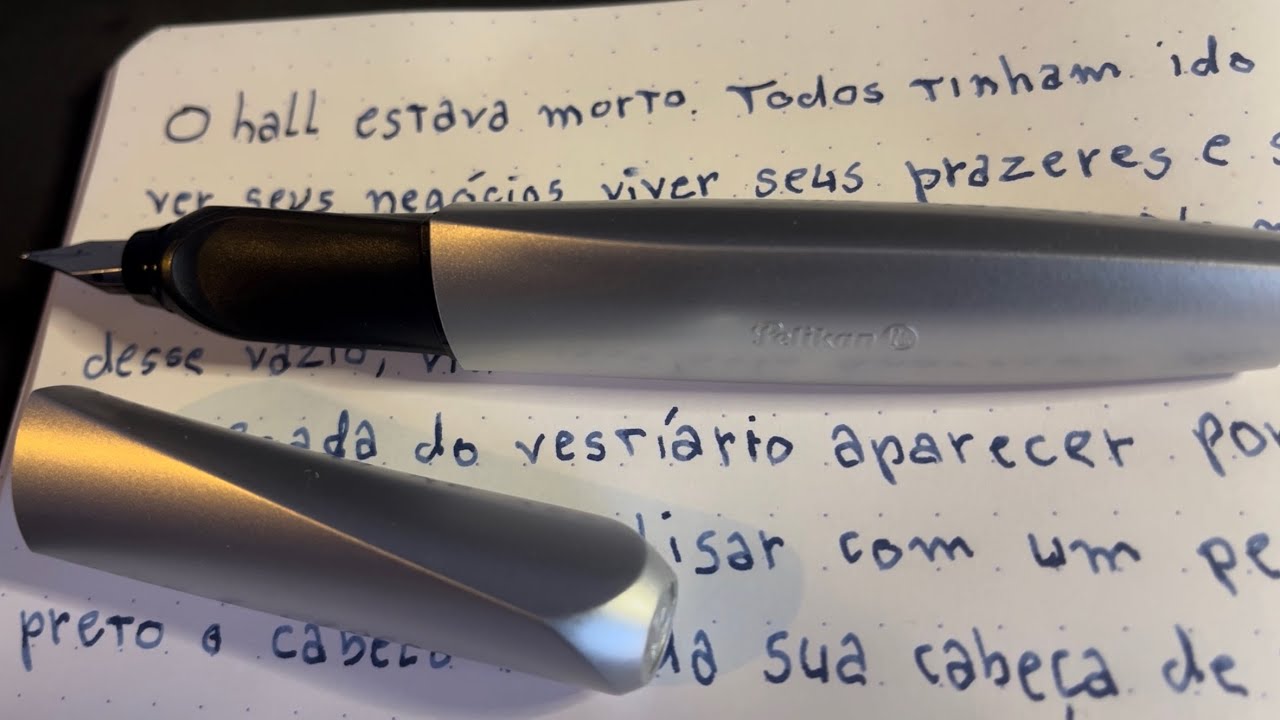 O hall estava morto. Todos tinham ido
ver seus negócios viver seus prazeres e
Pelikan
desse vazio,
do vestiário aparecer por
lisar com um
preto o cabelo sua cabeça de